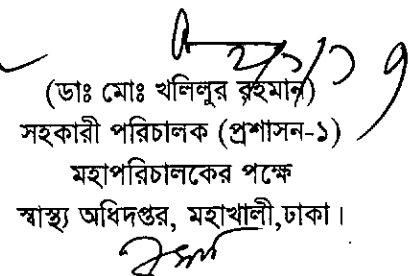 (ডাঃ মোঃ খলিলুর রহমান)
সহকারী পরিচালক (প্রশাসন-১)
মহাপরিচালকের পক্ষে
স্বাস্থ্য অধিদপ্তর, মহাখালী,ঢাকা।